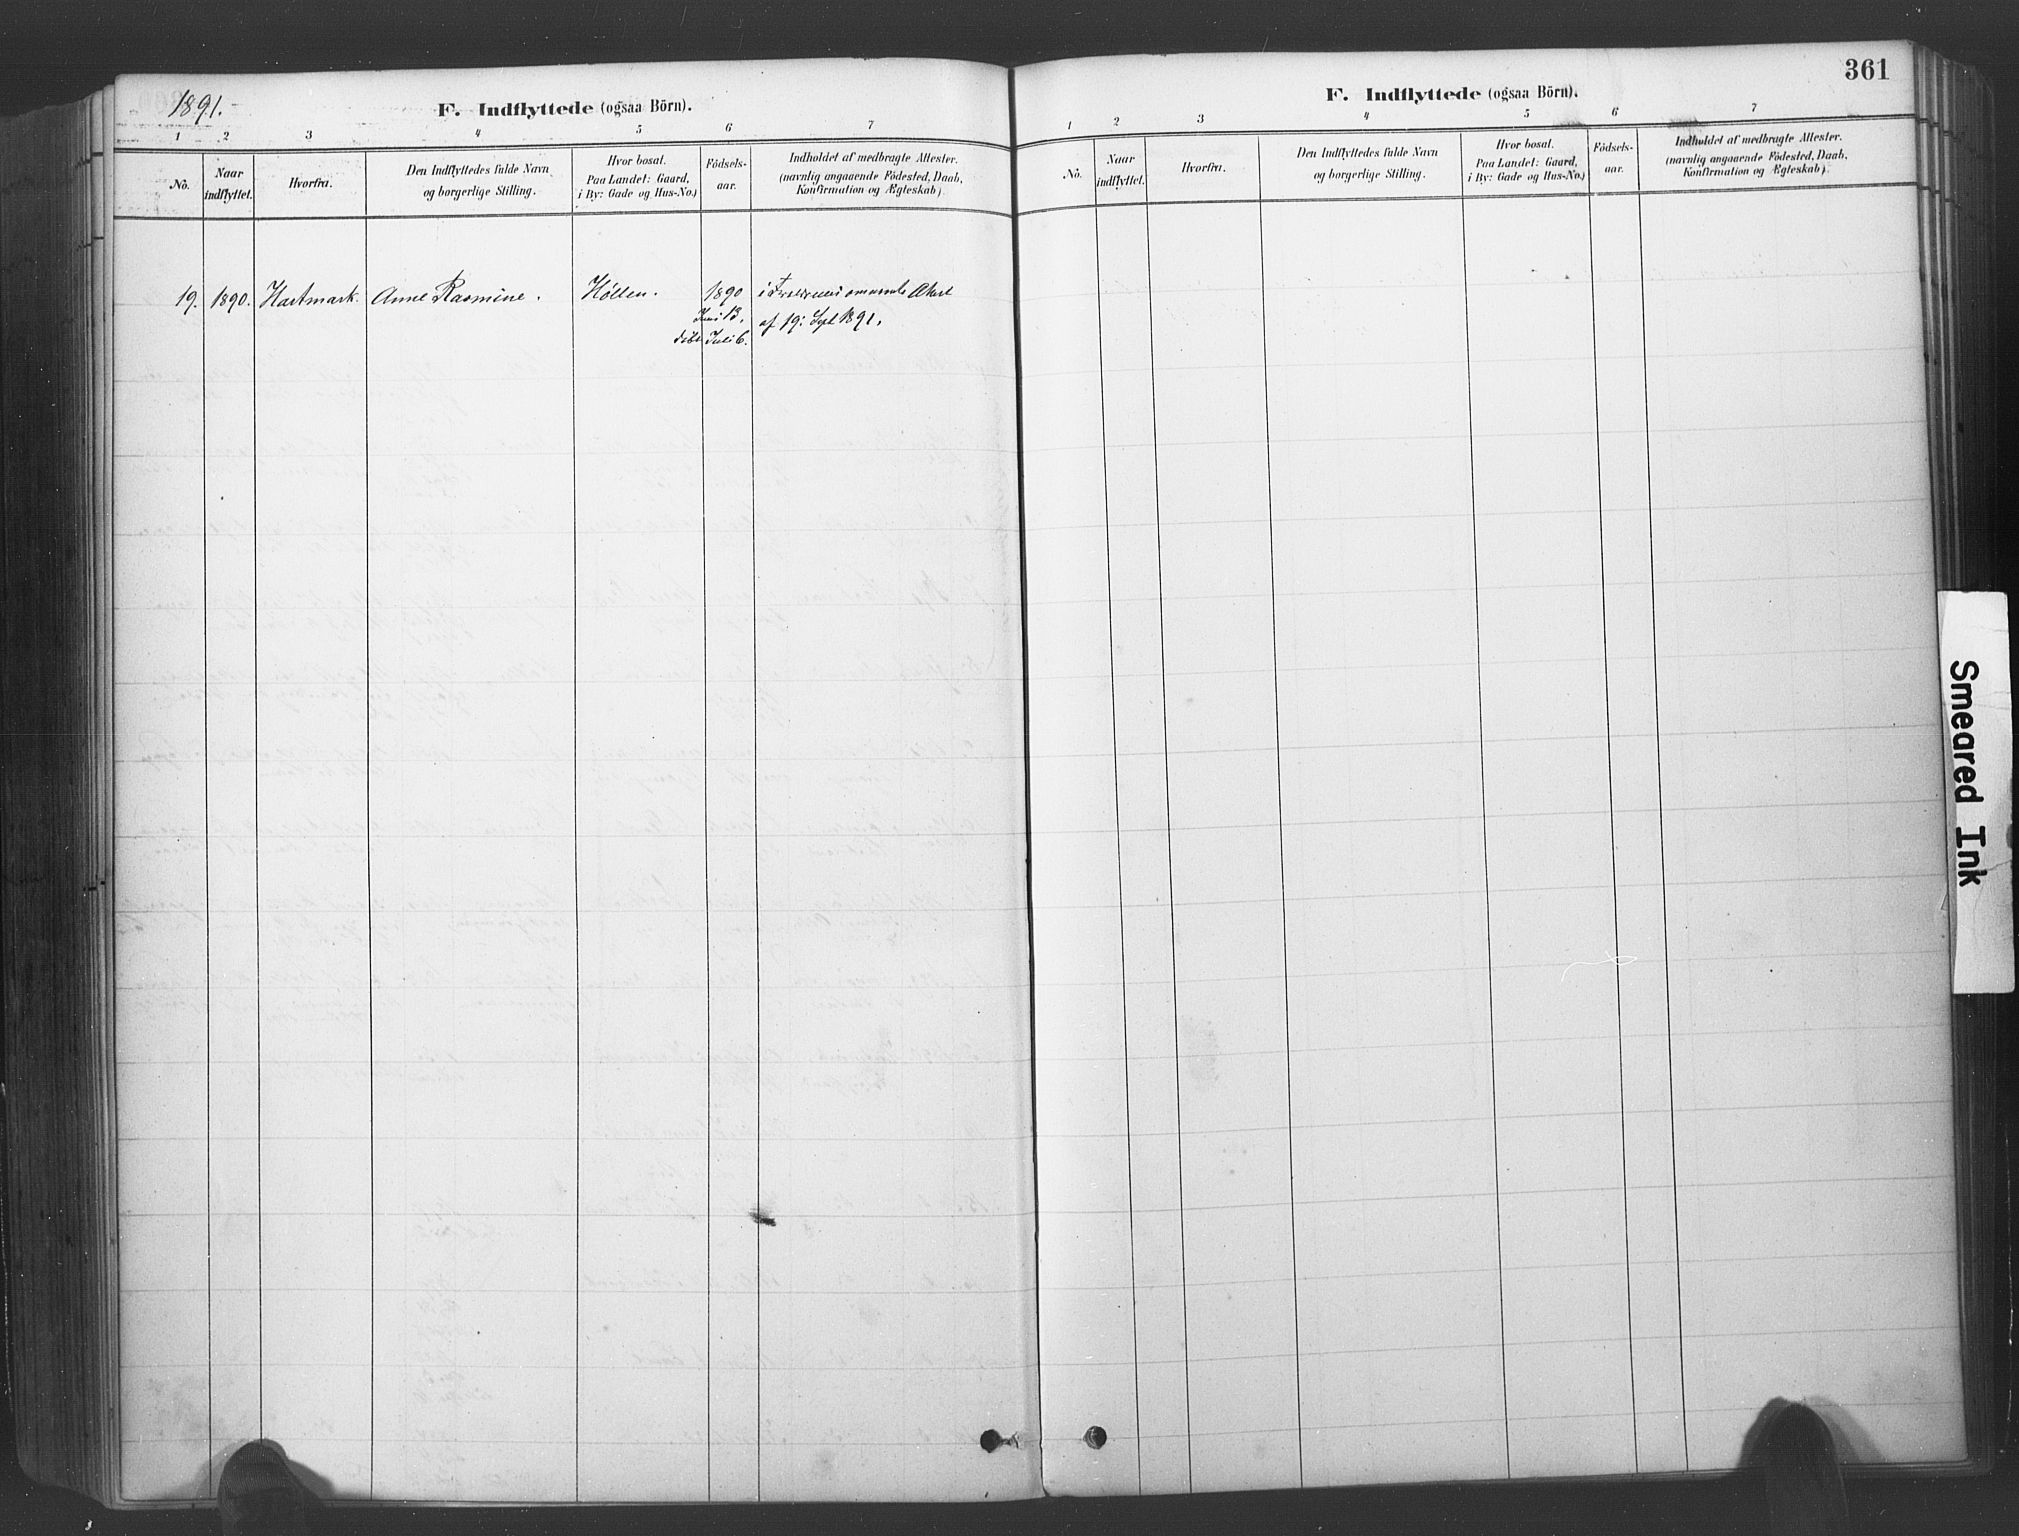 1891.
F. Indflyttede (ogsaa Börn).
1 2 3 4 5 6 7
No.
Naar indflyttet.
Hvorfra.
Den Indflyttedes fulde Navn
og borgerlige Stilling.
Hvor bosat.
Paa Landet: Gaard,
i By: Gade og Hus-No.)
Födsels-
aar.
Indholdet af medbragte Attester.
(navnlig angaaende Födested, Daab,
Konfirmation og Ægteskab)
19. 1890. Hartmark. Anne Rasmine. Hölten. 1890
Juni 13. af 19: Sept 1891.
döbt Juli 6.
361
F. Indflyttede (ogsaa Börn).
1 2 3 4 5 6 7
No.
Naar
indflyttet.
Hvorfra.
Den Indflyttedes fulde Navn
og borgerlige Stilling.
Hvor bosat.
Paa Landet: Gaard,
i By: Gade og Hus-No.)
Födsels-
aar.
Indholdet af medbragte Attester.
(navnlig angaaende Födested, Daab,
Konfirmation og Ægteskab)
Smeared Ink